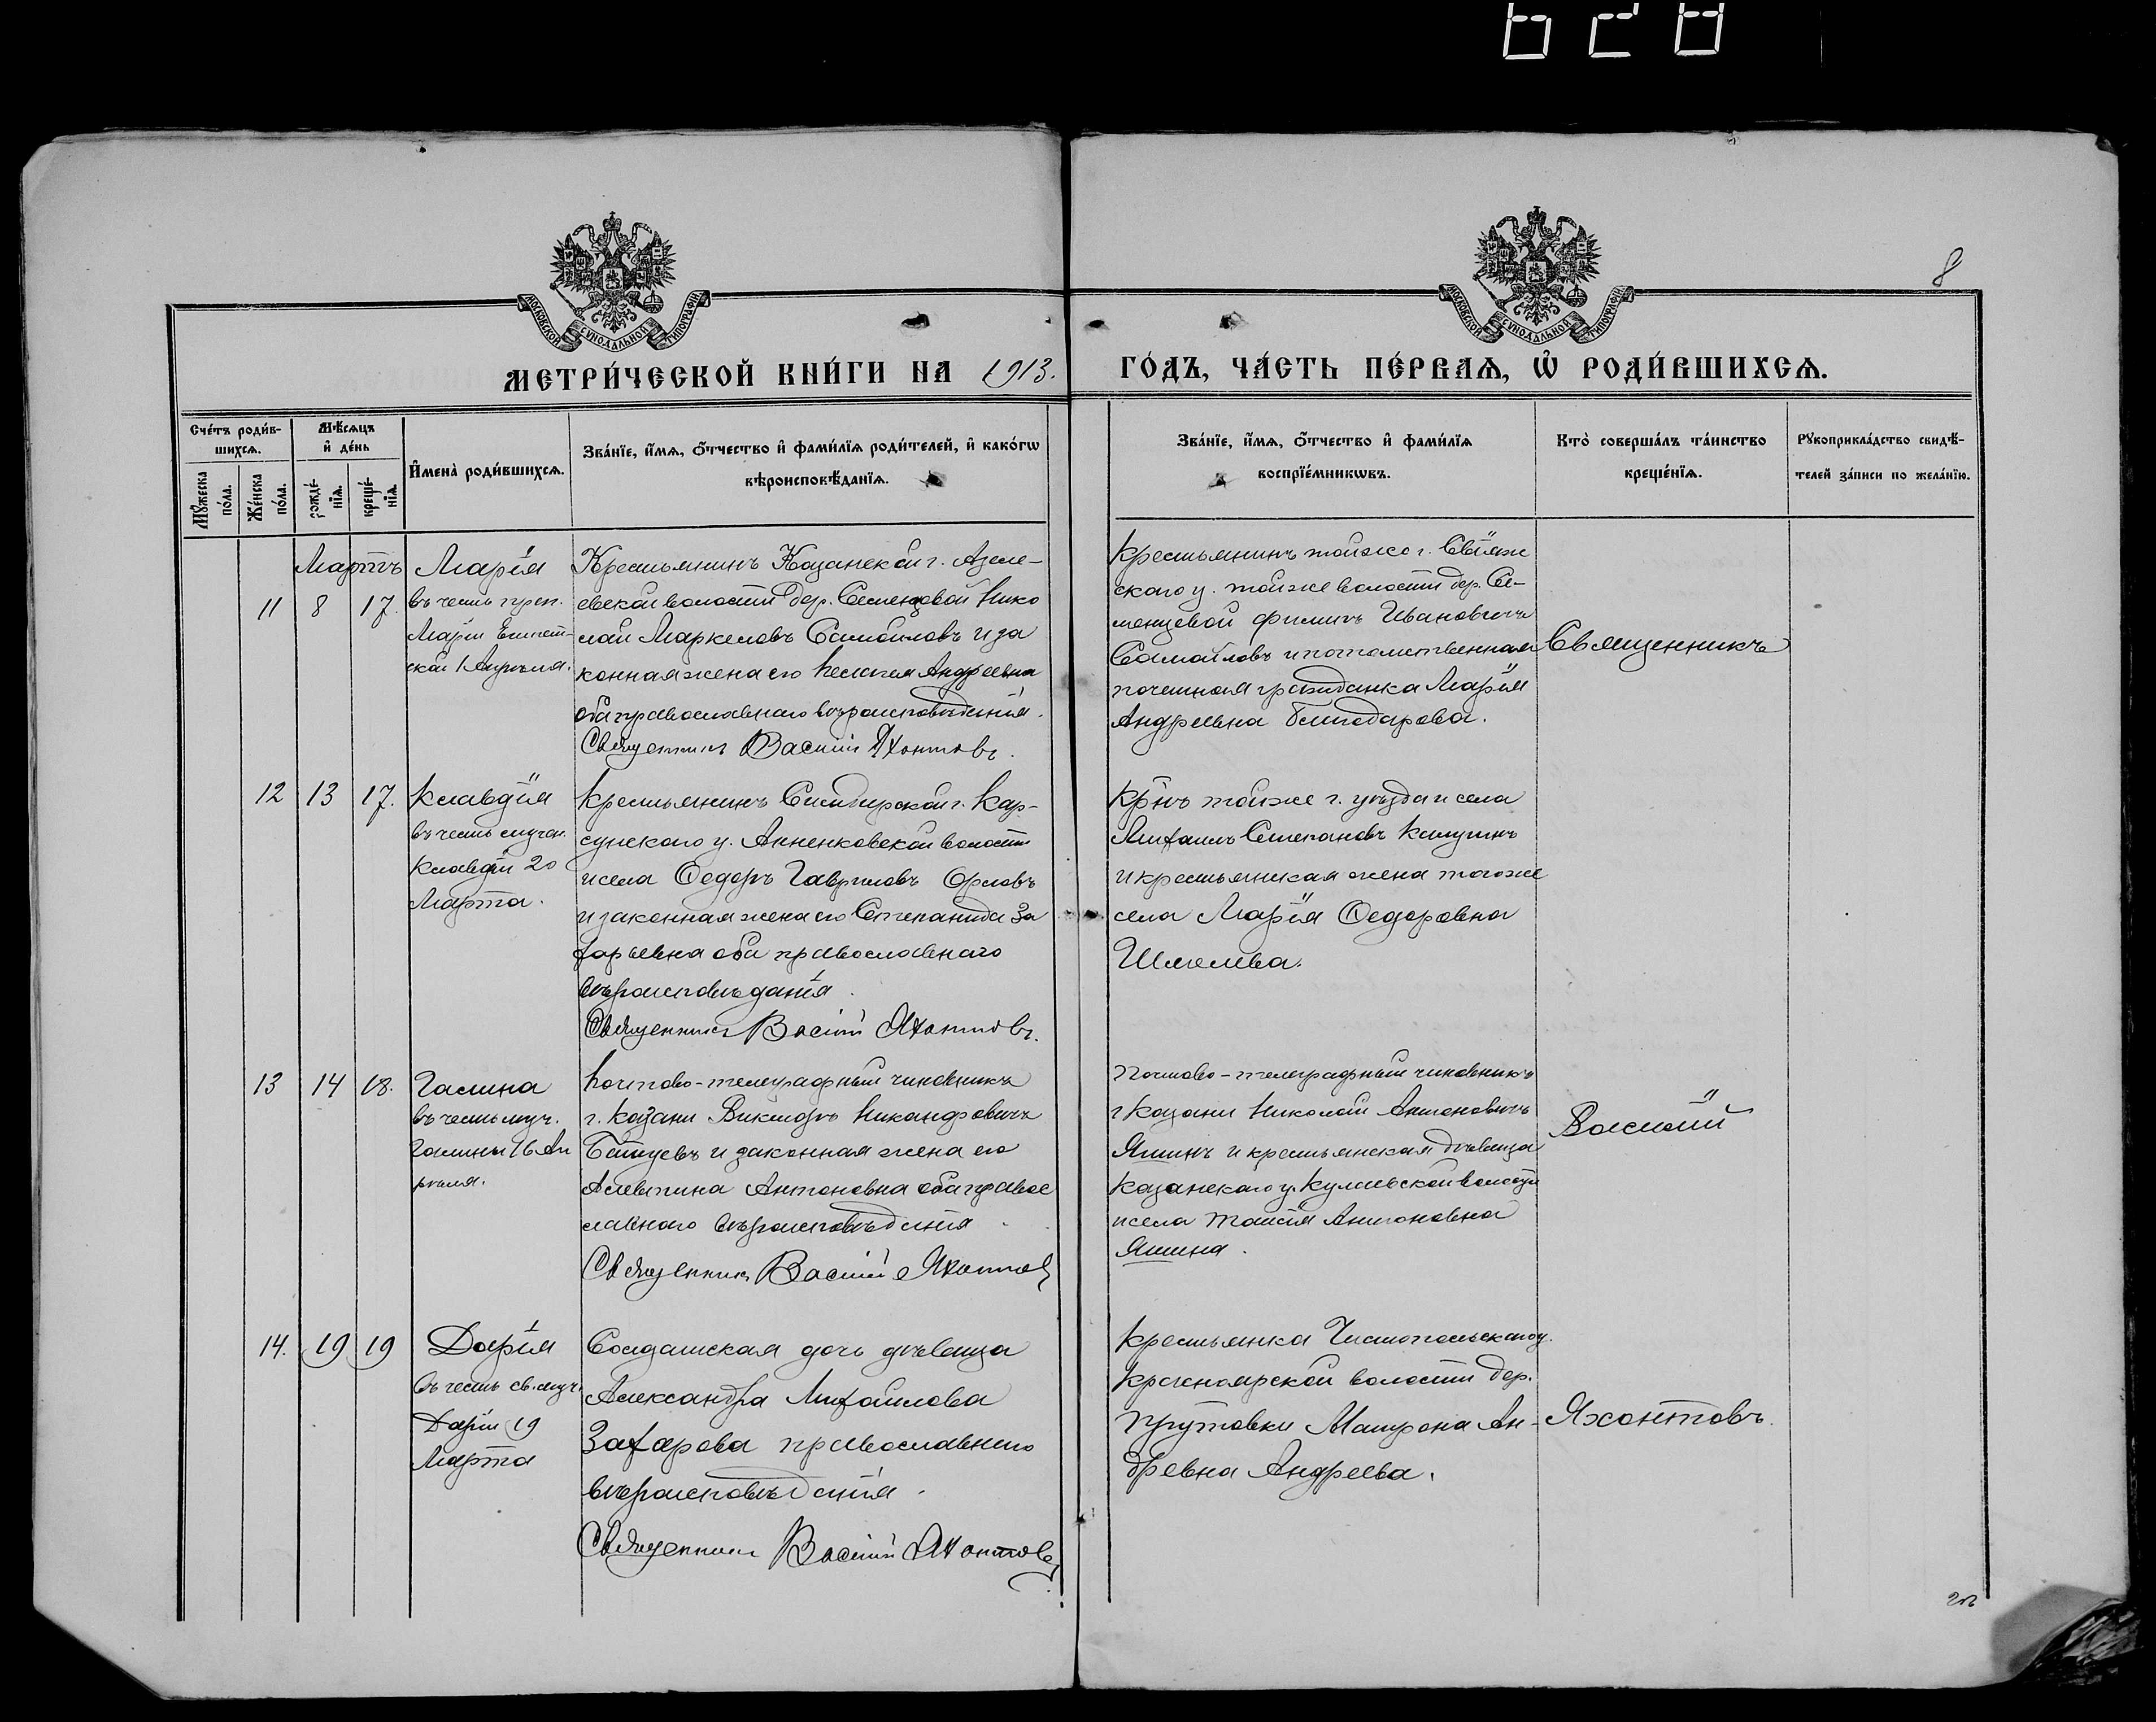 628
8
МОСКОВСКОЙ СѴНОДАЛЬНОЙ ТИПОГРАФІИ
МОСКОВСКОЙ СѴНОДАЛЬНОЙ ТИПОГРАФІИ
МЕТРИ́ЧЕСКОЙ КНИ́ГИ НА 1913.
ГО́ДЪ, ЧА́СТЬ ПЕ́РВАѦ, Ѡ҆ РОДИ́ВШИХСѦ.
Сче́тъ роди́в-
шихсѧ.
Мꙋ́жеска
по́ла.
Же́нска
по́ла.
Мѣ́сѧцъ
и҆ де́нь
рожде́-
нїѧ.
креще́-
нїѧ.
И҆мена̀ роди́вшихсѧ.
Зва́нїе, и҆́мѧ, ѻ҆́тчество и҆ фами́лїѧ роди́телей, и҆ како́гѡ
вѣроисповѣ́данїѧ.
Зва́нїе, и҆́мѧ, ѻ҆́тчество и҆ фами́лїѧ
воспрїе́мникѡвъ.
Кто̀ соверша́лъ та́инство
креще́нїѧ.
Рꙋкоприкла́дство свидѣ́-
телей за́писи по жела́нїю.
Мартъ
11 8 17.
Марія
въ честь преп.
Маріи Египет-
ской 1 Апрѣля.
Крестьянинъ Казанской г. Азеле-
евской волости дер. Семенцовой Нико
лай Маркеловъ Самойловъ и за
конная жена его Пелагея Андреевна
оба православнаго вѣроисповѣданія.
Священникъ Василій Яхонтовъ.
Крестьянинъ той же г. Свіяж
скаго у. той же волости дер. Се-
менцевой Филипъ Ивановичъ
Самойловъ и потомственная
почетная гражданка Марія
Андреевна
Священникъ
12 13 17.
Клавдія
въ честь мучен.
Клавдіи 20
Марта.
Крестьянинъ Симбирской г. Кар-
сунскаго у. Анненковской волости
и села Ѳедоръ Гавриловъ Орловъ
и законная жена его Степанида За
харьевна оба православнаго
вѣроисповѣданія.
Священникъ Василій Яхонтовъ.
Кр̃нъ той же г. уѣзда и села
Михаилъ Степановъ Калугинъ
и крестьянская жена того же
села Марія Ѳедоровна
Шмелева.
13 14 18.
Галина
въ честь муч.
Галины 16 Ап
рѣля.
Почтово-телеграфный чиновникъ
г. Казани Викторъ Никандровичъ
и законная жена его
Алевтина Антоновна оба право
славнаго вѣроисповѣданія.
Священникъ Василій Яхонтовъ
Почтово-телеграфный чиновникъ
г Казани Николай Антоновичъ
Яшинъ и крестьянская дѣвица
Казанскаго у. Кулаевской волости
и села Таисія Антоновна
Яшина.
Василій
14. 19 19
Дарія
въ честь св. муч.
Даріи 19
Марта
Солдатская дочь дѣвица
Александра Михайлова
Захарова православнаго
вѣроисповѣданія.
Священникъ Василій Яхонтовъ
Крестьянка Чистопольскаго у.
Красноярской волости дер.
Прутовки Матрона Ан-
дреевна Андреева.
Яхонтовъ.